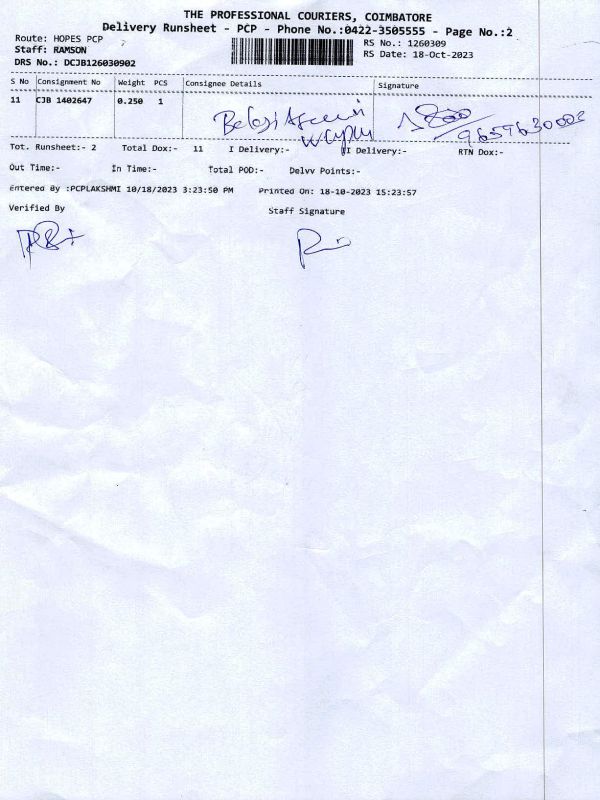 THE PROFESSIONAL COURIERS, COIMBATORE
Delivery Runsheet - PCP - Phone No.:0422-3505555 - Page No.:2
Route: HOPES PCP
RS No.: 1260309
Staff: RAMSON
RS Date: 18-Oct-2023
DRS No.: DCJB126030902
S No Consignment No Weight PCS Consignee Details Signature
11 CJB 1402647 0.250 1
9659630003
Tot. Runsheet:- 2 Total Dox:- 11 I Delivery:- II Delivery:- RTN Dox:-
Out Time:- In Time:- Total POD:- Delvv Points:-
Entered By :PCPLAKSHMI 10/18/2023 3:23:50 PM Printed On: 18-10-2023 15:23:57
Verified By Staff Signature